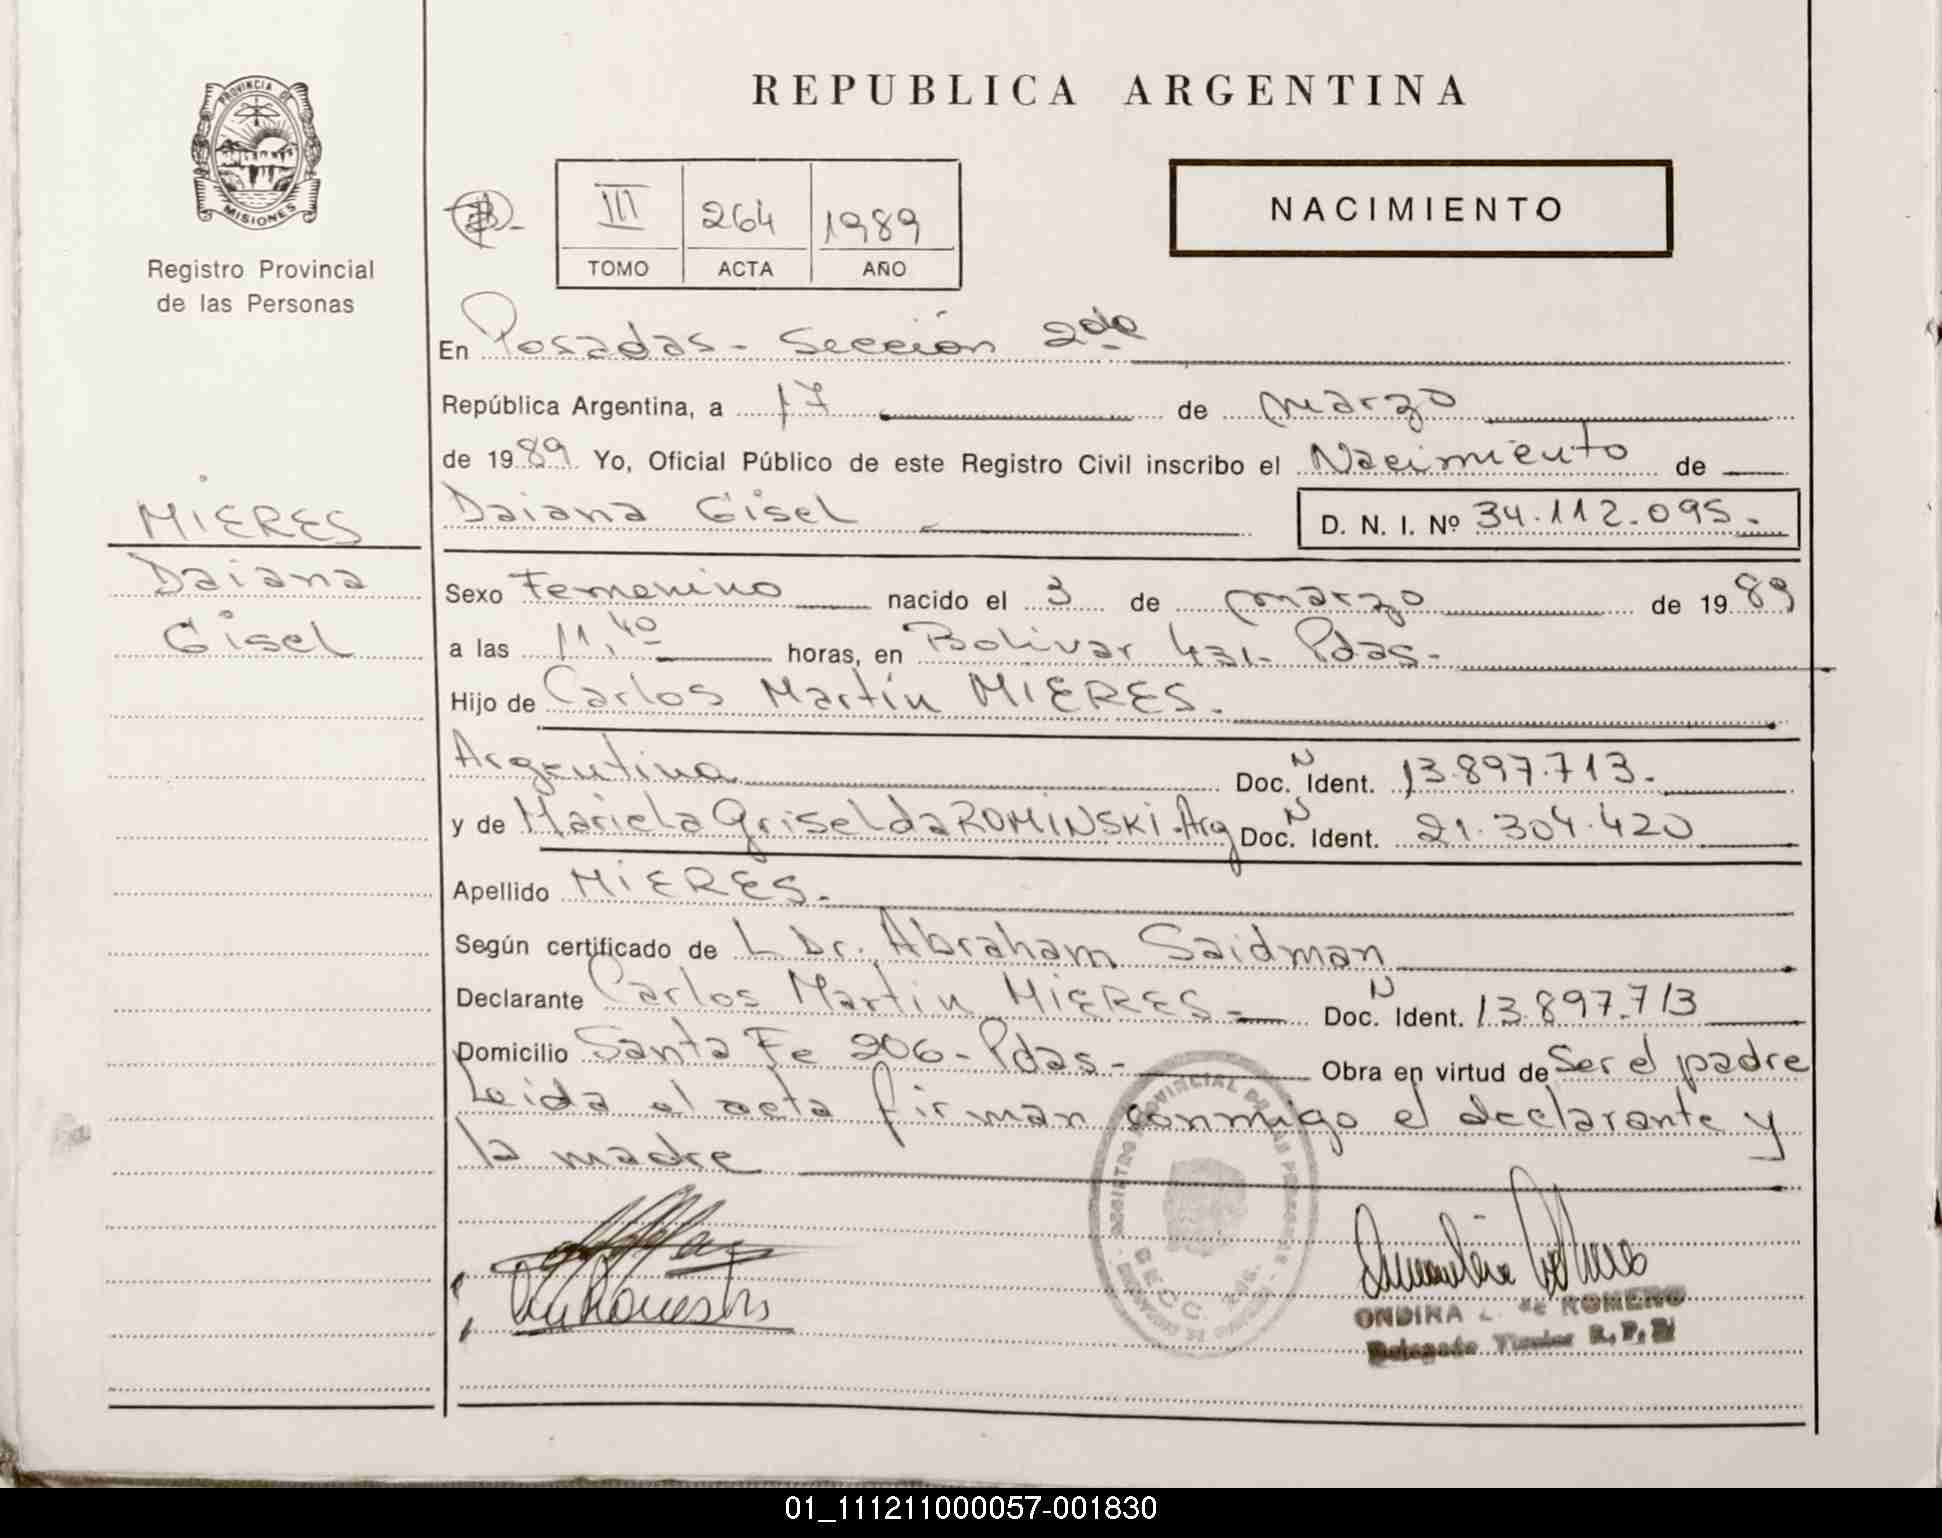 REPUBLICA ARGENTINA
PROVINCIA DE
MISIONES
Registro Provincial
de las Personas
III 264 1989
TOMO ACTA AÑO
NACIMIENTO
En Posadas - Sección 2da
República Argentina, a 17 de marzo
de 1989 Yo, Oficial Público de este Registro Civil inscribo el Nacimiento de
Daiana Gisel D. N. I. Nº 34.112.095.
MIERES
Daiana
Gisel
Sexo Femenino nacido el 3 de marzo de 1989
a las 11,40 horas, en Bolivar 431- Pdas-
Hijo de Carlos Martín MIERES.
Argentina Doc. N Ident. 13.897.713.
y de Mariela Griselda ROMINSKI. Arg Doc. N Ident. 21.304.420
Apellido MIERES.
Según certificado de L Dr. Abraham Saidman
Declarante Carlos Martin MIERES- Doc. N Ident. 13.897.713
Domicilio Santa Fe 206- Pdas- Obra en virtud de Ser el padre
Leida el acta firman conmigo el declarante y
la madre
REGISTRO PROVINCIAL DE LAS PERSONAS
SECC. 2
ONDINA L. de ROMERO
Delegado Titular R. P. P.
01_111211000057-001830